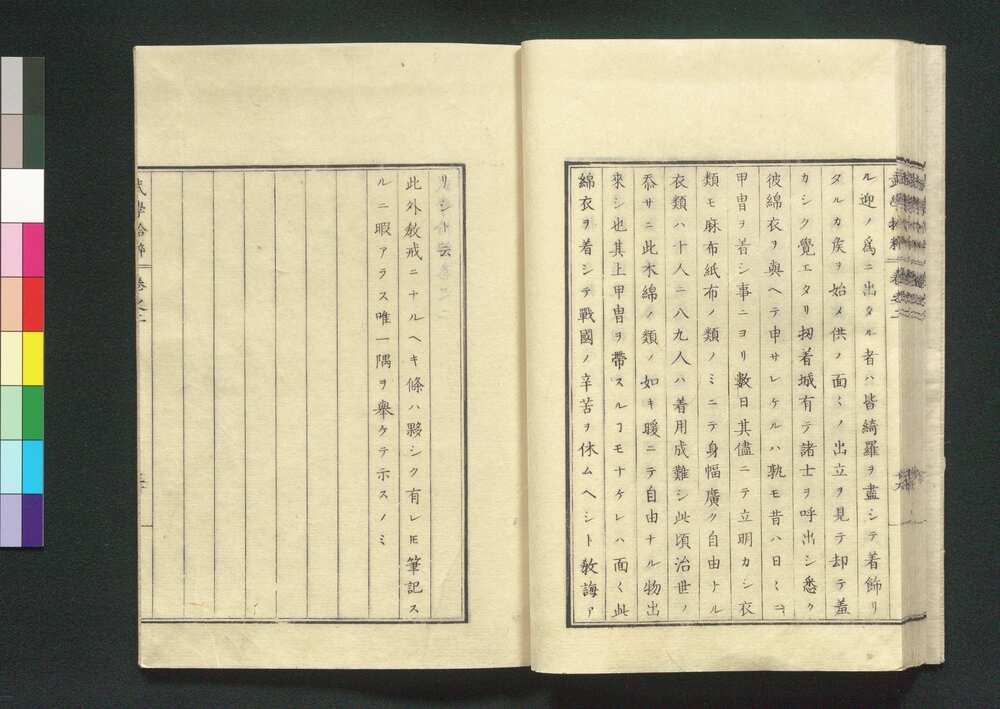 ル迎ノ爲ニ出タル者ハ皆綺羅ヲ盡シテ着飾リ
タルカ侯ヲ始メ供ノ面ミノ出立ヲ見テ却テ羞
カシク覺エタリ扨着城有テ諸士ヲ呼出シ悉ク
彼綿衣ヲ與ヘテ申サレケルハ孰モ昔ハ日〻ニ
甲冑ヲ着シ事ニヨリ數日其儘ニテ立明カシ衣
類モ麻布紙布ノ類ノミニテ身幅廣ク自由トル
衣類ハ十人ニ八九人ハ着用成難シ此頃治世ノ
忝サニ此木綿ノ類ノ如キ暖ニテ自由ナル物出
來シ也其上甲冑ヲ帶スルヿモナケレハ面〻此
綿衣ヲ着シテ戰國ノ辛苦ヲ休ムヘシト敎誨ア
リシト云
此外敎戒ニナルヘキ條ハ夥シク有レ𪜈筆記ス
ルニ暇アラス唯一隅ヲ擧ケテ示スノミ
武學拾粹 卷之二